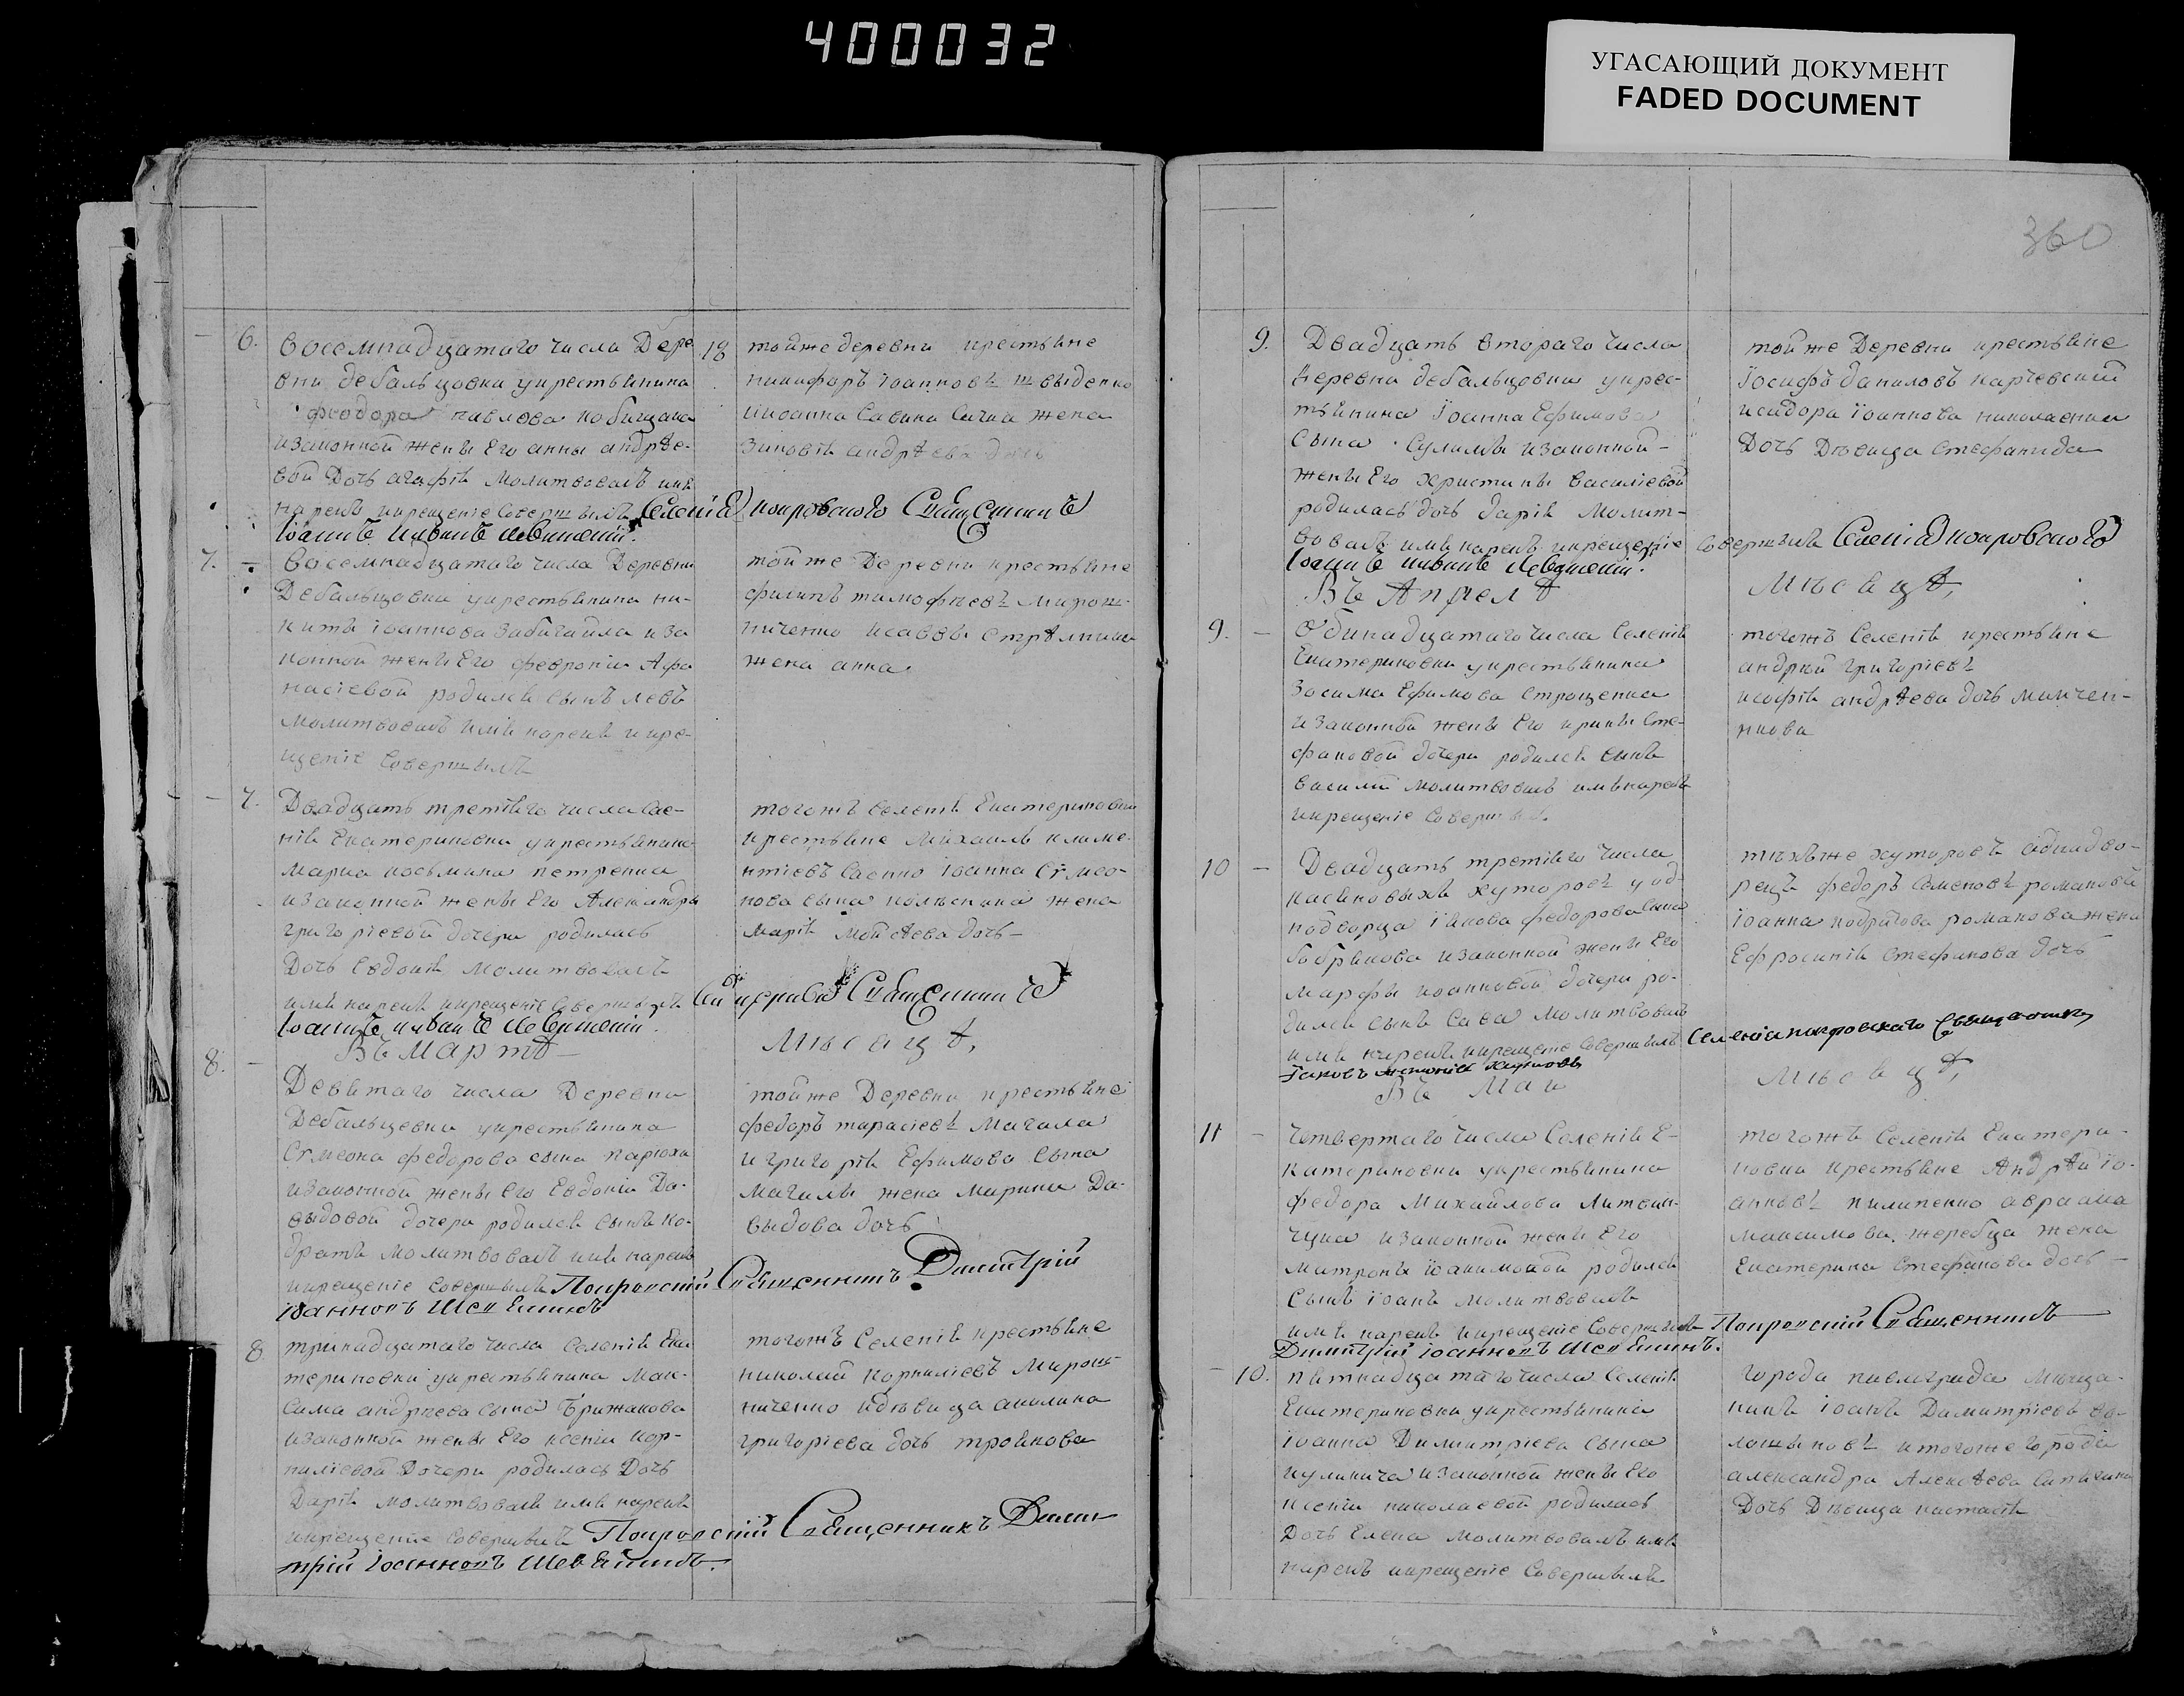 400032
УГАСАЮЩИЙ ДОКУМЕНТ
FADED DOCUMENT
360
6. Восемнадцатаго числа Дере 18
вни дебальцовки укрестьянина
феодора павлова
изаконной жены Его анны андрѣе-
вой Дочь агафія молитвовалъ имя
нарекъ икрещеніе Совершилъ Селенія
тойже деревни крестьяне
никифоръ іоанновъ швыденко
иіоанна Савина жена
зиновія андрѣева дочь
покровского Священникъ
іоаннъ
7. Восемнадцатаго числа Деревни
Дебальцовки укрестьянина ни-
киты іоаннова Забигайла иза
конной жены Его февроніи Афа
насіевой родился сынъ левъ
молитвовалъ имя нарекъ икре-
щеніе Совершилъ
тойже Деревни крестьяне
филипъ тимофѣевъ мирош-
ниченко исаввы
жена анна
7. Двадцать третяго числа Сле-
нія Екатериновки укрестьянина
марка косьмина петренка
изаконной жены Его Александры
григоріевой дочери родилась
Дочь Евдокія молитвовалъ
имя нарекъ икрещеніе Совершилъ
тогожъ селенія Екатериновки
крестьяне Михаилъ климе-
нтіевъ Саенко іоанна Сѵмео-
нова сына колѣсника жена
марія моѵсѣева дочь
Священникъ
іоаннъ
Въ мартѣ Мѣсяцѣ,
8. Девятаго числа Деревни
Дебальцевки укрестьянина
Сѵмеона федорова сына парюхи
изаконной жены Его Евдокіи Да-
выдовой дочери родился сынъ ко-
дратъ молитвовалъ имя нарекъ
икрещеніе совершилъ Покровскій Священникъ Димитрій
іоанновъ
тойже Деревни крестьяне
федоръ тарасіевъ Магала
игригорія Ефимова сына
магалы жена марина Да-
выдова дочь
8. тринадцатаго числа селенія Ека
териновки укрестьянина Мак-
сима андрѣева сына Брижакова
изаконной жены Его ксеніи кор-
ниліевой Дочери родилась Дочь
Дарія молитвовалъ имя нарекъ
икрещеніе Совершилъ Покровскій Священникъ Дими
трій іоанновъ
тогожъ Селенія крестьяне
николай корниліевъ мирош-
ниченко идѣвица акилина
григоріева дочь троянова
9. Двадцать втораго числа
деревни дебальцовки укрес-
тьянина іоанна Ефимова
сына Сулимы изаконной
жены Его христины василіевой
родилась дочь дарія молит-
вовалъ имя нарекъ икрещеніе совершилъ Селенія покровского
іоаннъ
тойже Деревни крестьяне
іосифъ даниловъ карчевскій
исидора іоаннова николаенка
Дочь Дѣвица стефанида
Въ Апрелѣ Мѣсяцѣ,
9. Одинадцатаго числа Селенія
Екатериновки укрестьянина
Зосима Ефимова строценка
изаконной жены Его ирины Сте-
фановой дочери родился сынъ
василій молитвовалъ имянарекъ
икрещеніе Совершилъ
тогожъ Селенія крестьяне
андрей григоріевъ
исофія андрѣева дочь
10 Двадцать третяго числа
хуторовъ у од-
нодворца іякова федорова сына
бобрякова изаконной жены Его
марфы іоанновой дочери ро-
дился сынъ Сава молитвовалъ
имя нарекъ икрещеніе Совершилъ Селенія покровскаго Священникъ
тѣхъже хуторовъ аднадво-
рецъ федоръ Семеновъ романовъ
іоанна кодратова романова жена
Ефросинія Стефанова дочь
Въ Маи Мѣсяцѣ,
11 Четвертаго числа Селенія Е-
катериновки укрестьянина
федора михайлова литвин-
чука изаконной жены Его
матроны іоакимовой родился
сынъ іоанъ молитвовалъ
имя нарекъ икрещеніе Совершилъ Покровскій Священникъ
Димитрій іоанновъ
тогожъ Селенія Екатери-
новки крестьяне Андрѣй іо-
анновъ пилипенко авраама
максимова жеребца жена
Екатерина Стефанова дочь
10. пятнадцатаго числа Селенія
Екатериновки укрестьянина
іоанна Димитріева сына
кулинича изаконной жены Его
ксеніи николаевой родилась
Дочь Елена молитвовалъ имя
нарекъ икрещеніе Совершилъ
города павлограда мѣща-
нинъ іоанъ Димитріевъ
итогоже города
александра Алексѣева
Дочь Дѣвица настасія